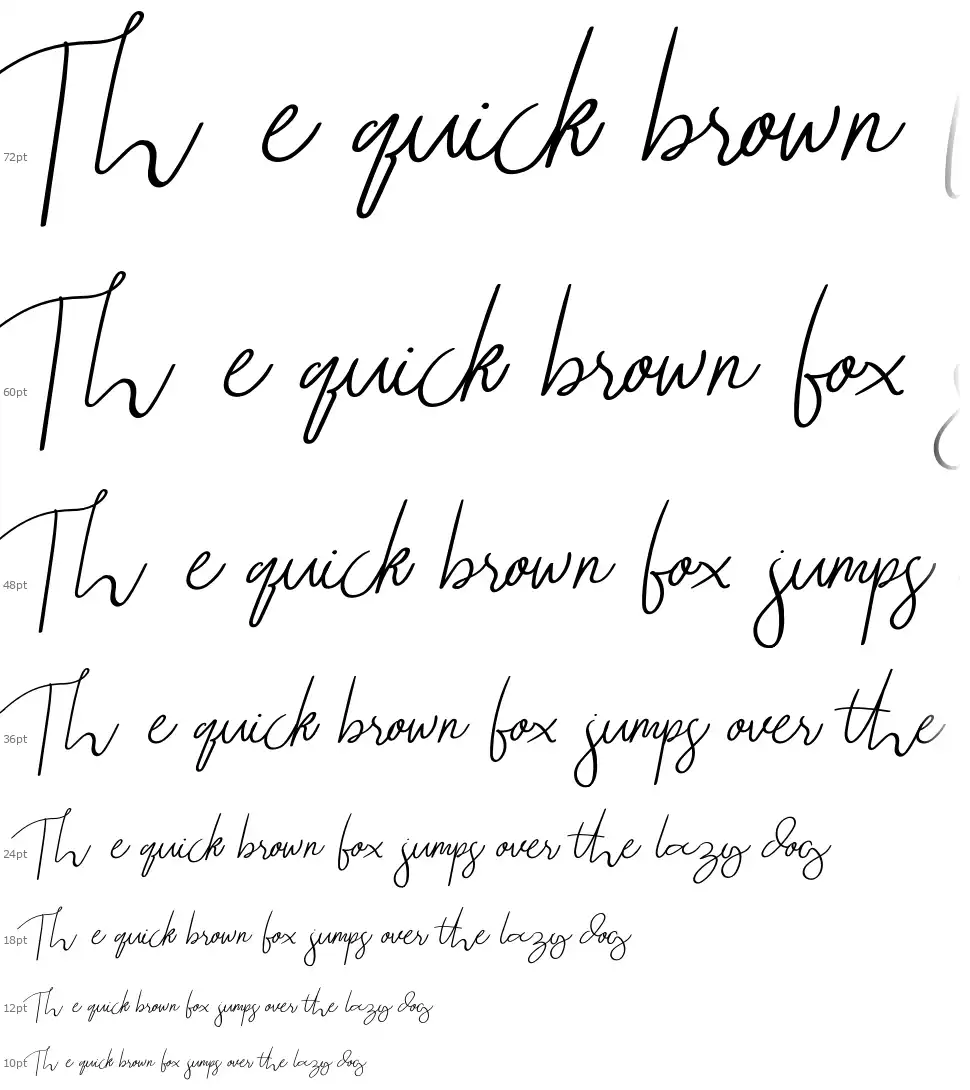 72pt Th e quick brown
60pt Th e quick brown fox
48pt Th e quick brown fox jumps
36pt Th e quick brown fox jumps over the
24pt Th e quick brown fox jumps over the lazy dog
18pt Th e quick brown fox jumps over the lazy dog
12pt Th e quick brown fox jumps over the lazy dog
10pt Th e quick brown fox jumps over the lazy dog